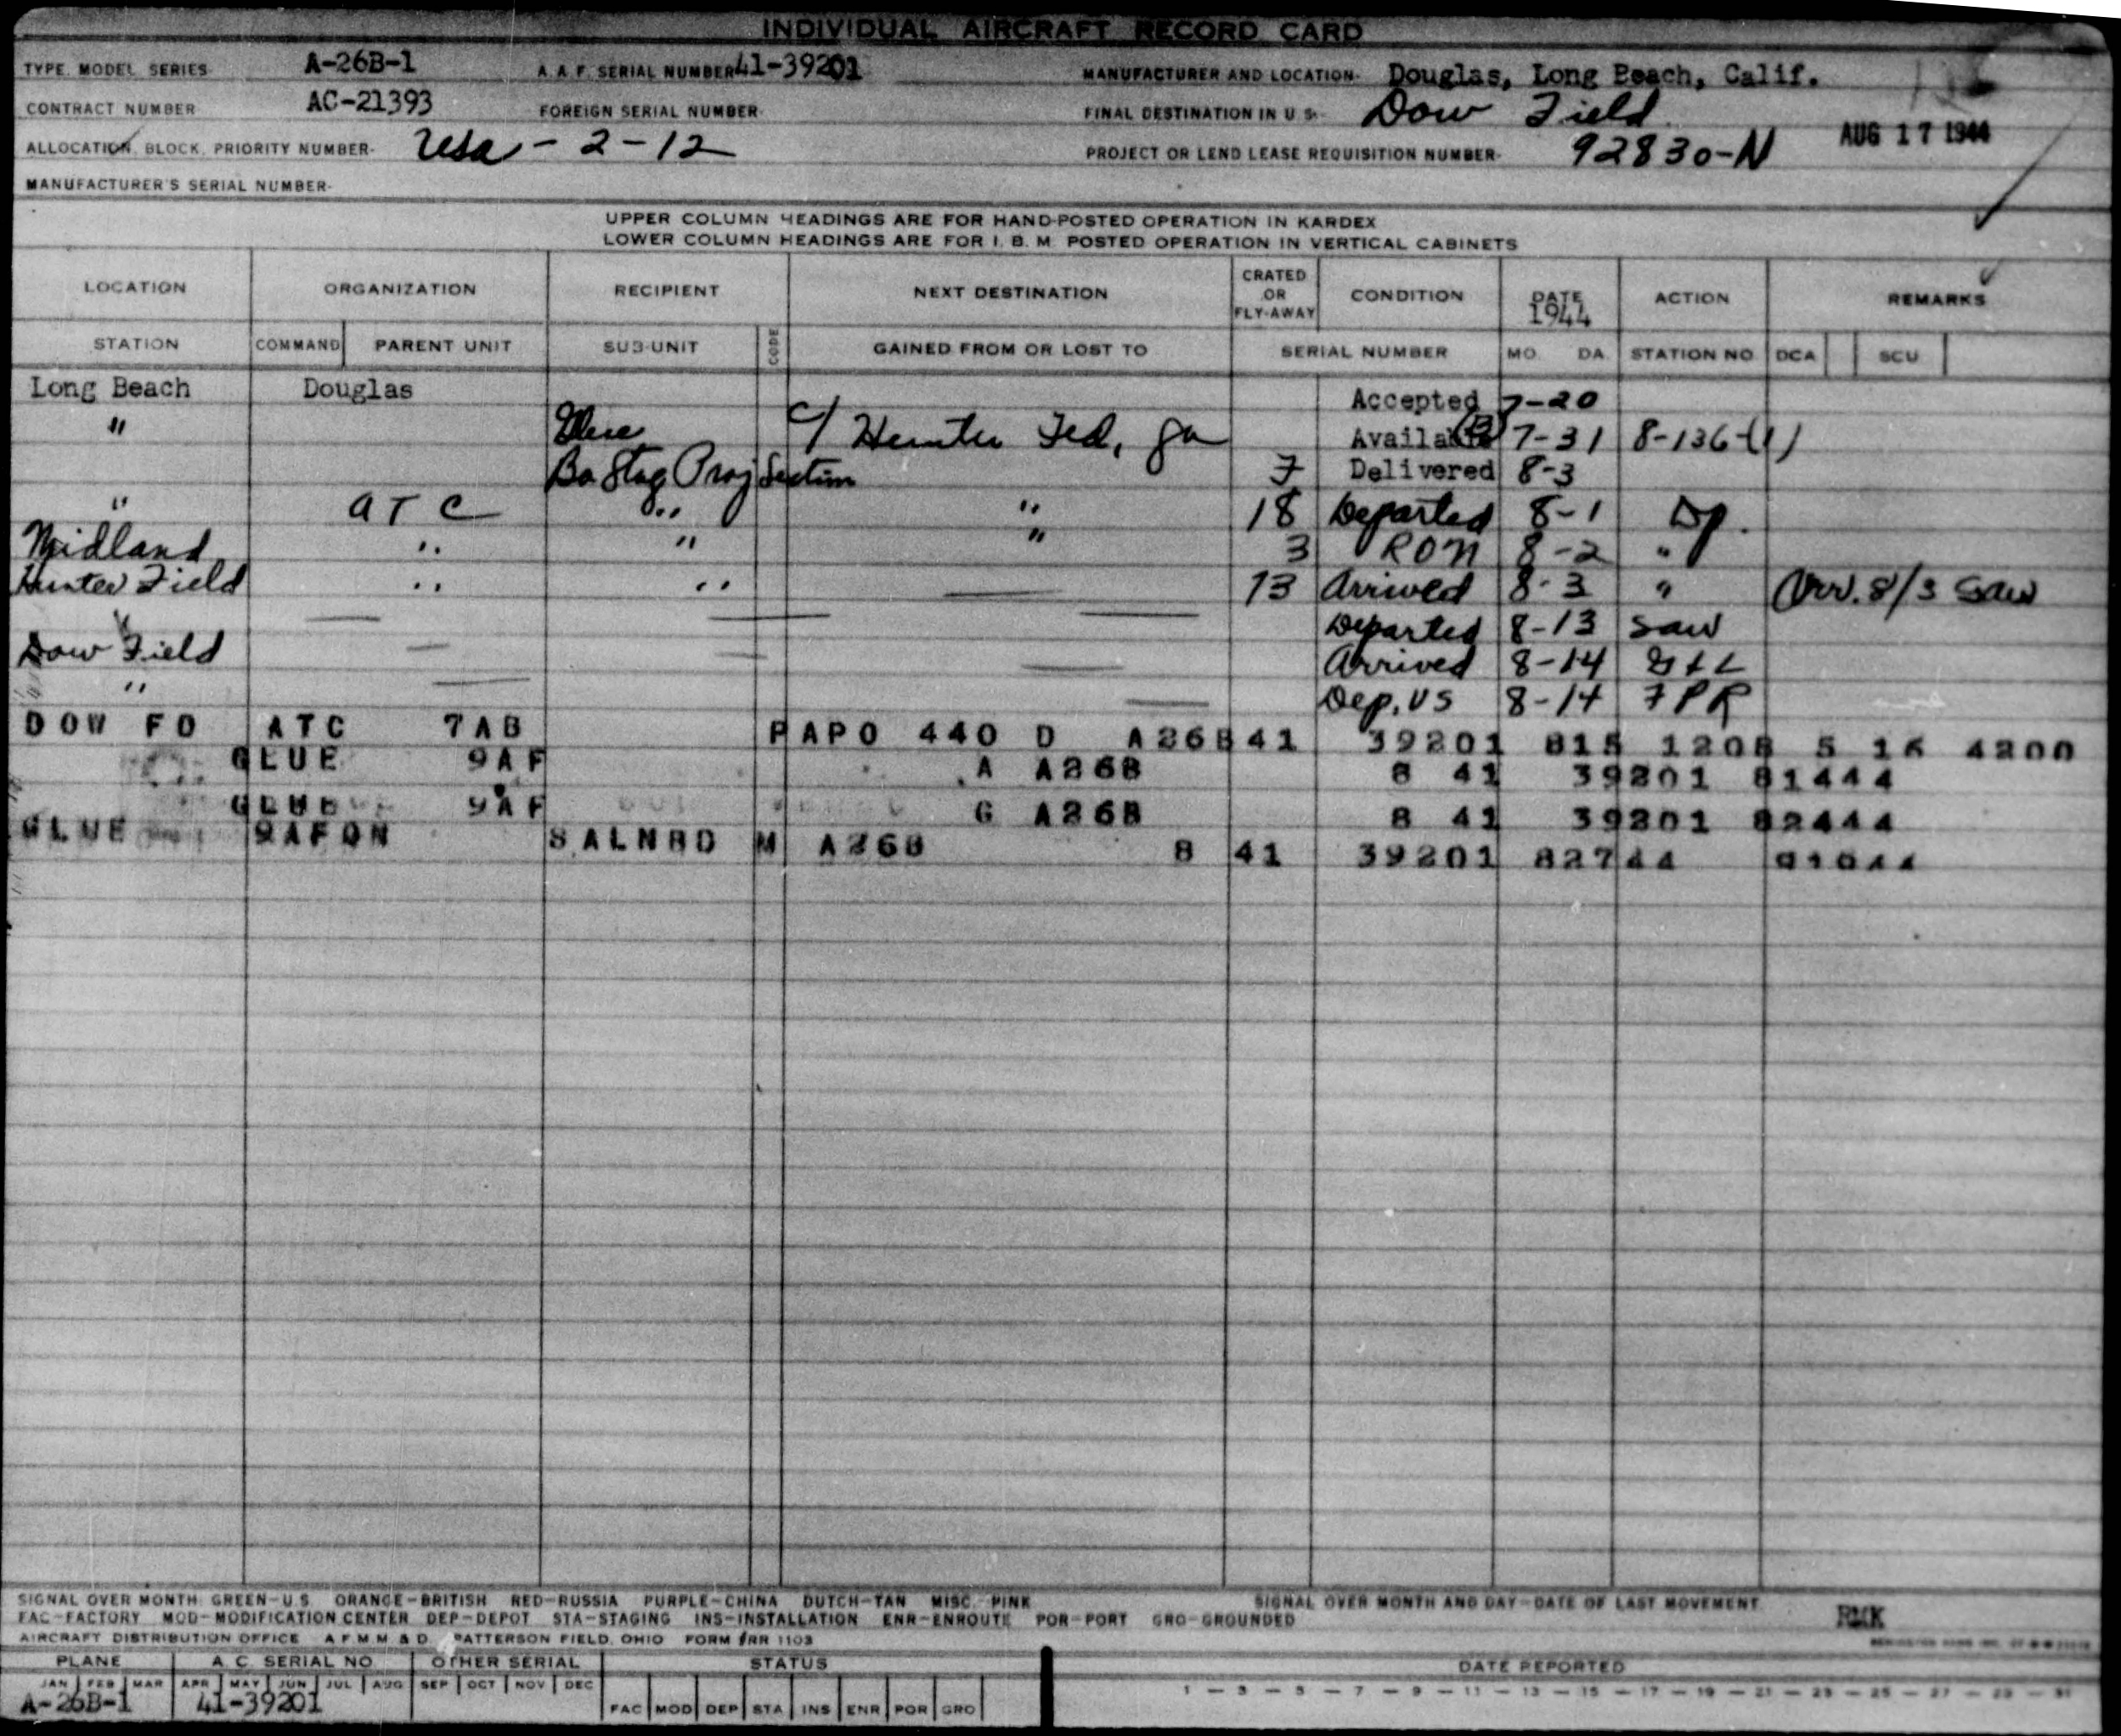 INDIVIDUAL AIRCRAFT RECORD CARD
TYPE, MODEL, SERIES- A-26B-1 A.A.F. SERIAL NUMBER 41-39201 MANUFACTURER AND LOCATION- Douglas, Long Beach, Calif.
CONTRACT NUMBER AC-21393 FOREIGN SERIAL NUMBER- FINAL DESTINATION IN U.S.- Dow Field
ALLOCATION, BLOCK, PRIORITY NUMBER- Usa - 2 - 12 PROJECT OR LEND LEASE REQUISITION NUMBER- 92830-N AUG 17 1944
MANUFACTURER'S SERIAL NUMBER-
UPPER COLUMN HEADINGS ARE FOR HAND-POSTED OPERATION IN KARDEX
LOWER COLUMN HEADINGS ARE FOR I. B. M. POSTED OPERATION IN VERTICAL CABINETS
LOCATION ORGANIZATION RECIPIENT NEXT DESTINATION CRATED OR FLY-AWAY CONDITION DATE 1944 ACTION REMARKS
STATION COMMAND PARENT UNIT SUB-UNIT CODE GAINED FROM OR LOST TO SERIAL NUMBER MO. DA. STATION NO DCA SCU
Long Beach Douglas Accepted 7-20
" Glue c/ Hunter Fld, Ga Available (B) 7-31 8-136-(1)
Ba Stag Proj Section 7 Delivered 8-3
" ATC " " 18 Departed 8-1 Dp.
Midland " " " 3 RON 8-2 "
Hunter Field " " — 13 Arrived 8-3 " Arr. 8/3 Saw
— — Departed 8-13 Saw
Dow Field — — — Arrived 8-14
" — — Dep. US 8-14 FPR
DOW FD ATC 7AB P APO 440 D A26B 41 39201 815 1208 5 16 4200
GLUE 9AF A A26B 8 41 39201 81444
GLUE 9AF G A26B 8 41 39201 82444
GLUE 9AFON SALNBD M A26B 8 41 39201 82744 91044
SIGNAL OVER MONTH: GREEN-U.S. ORANGE-BRITISH RED-RUSSIA PURPLE-CHINA DUTCH-TAN MISC.-PINK SIGNAL OVER MONTH AND DAY-DATE OF LAST MOVEMENT
FAC-FACTORY MOD-MODIFICATION CENTER DEP-DEPOT STA-STAGING INS-INSTALLATION ENR-ENROUTE POR-PORT GRO-GROUNDED RMK
AIRCRAFT DISTRIBUTION OFFICE A.F.M.M.&D. PATTERSON FIELD, OHIO FORM #RR 1103
PLANE A.C. SERIAL NO OTHER SERIAL STATUS DATE REPORTED
JAN FEB MAR APR MAY JUN JUL AUG SEP OCT NOV DEC 1 - 3 - 5 - 7 - 9 - 11 - 13 - 15 - 17 - 19 - 21 - 23 - 25 - 27 - 29 - 31
A-26B-1 41-39201 FAC MOD DEP STA INS ENR POR GRO